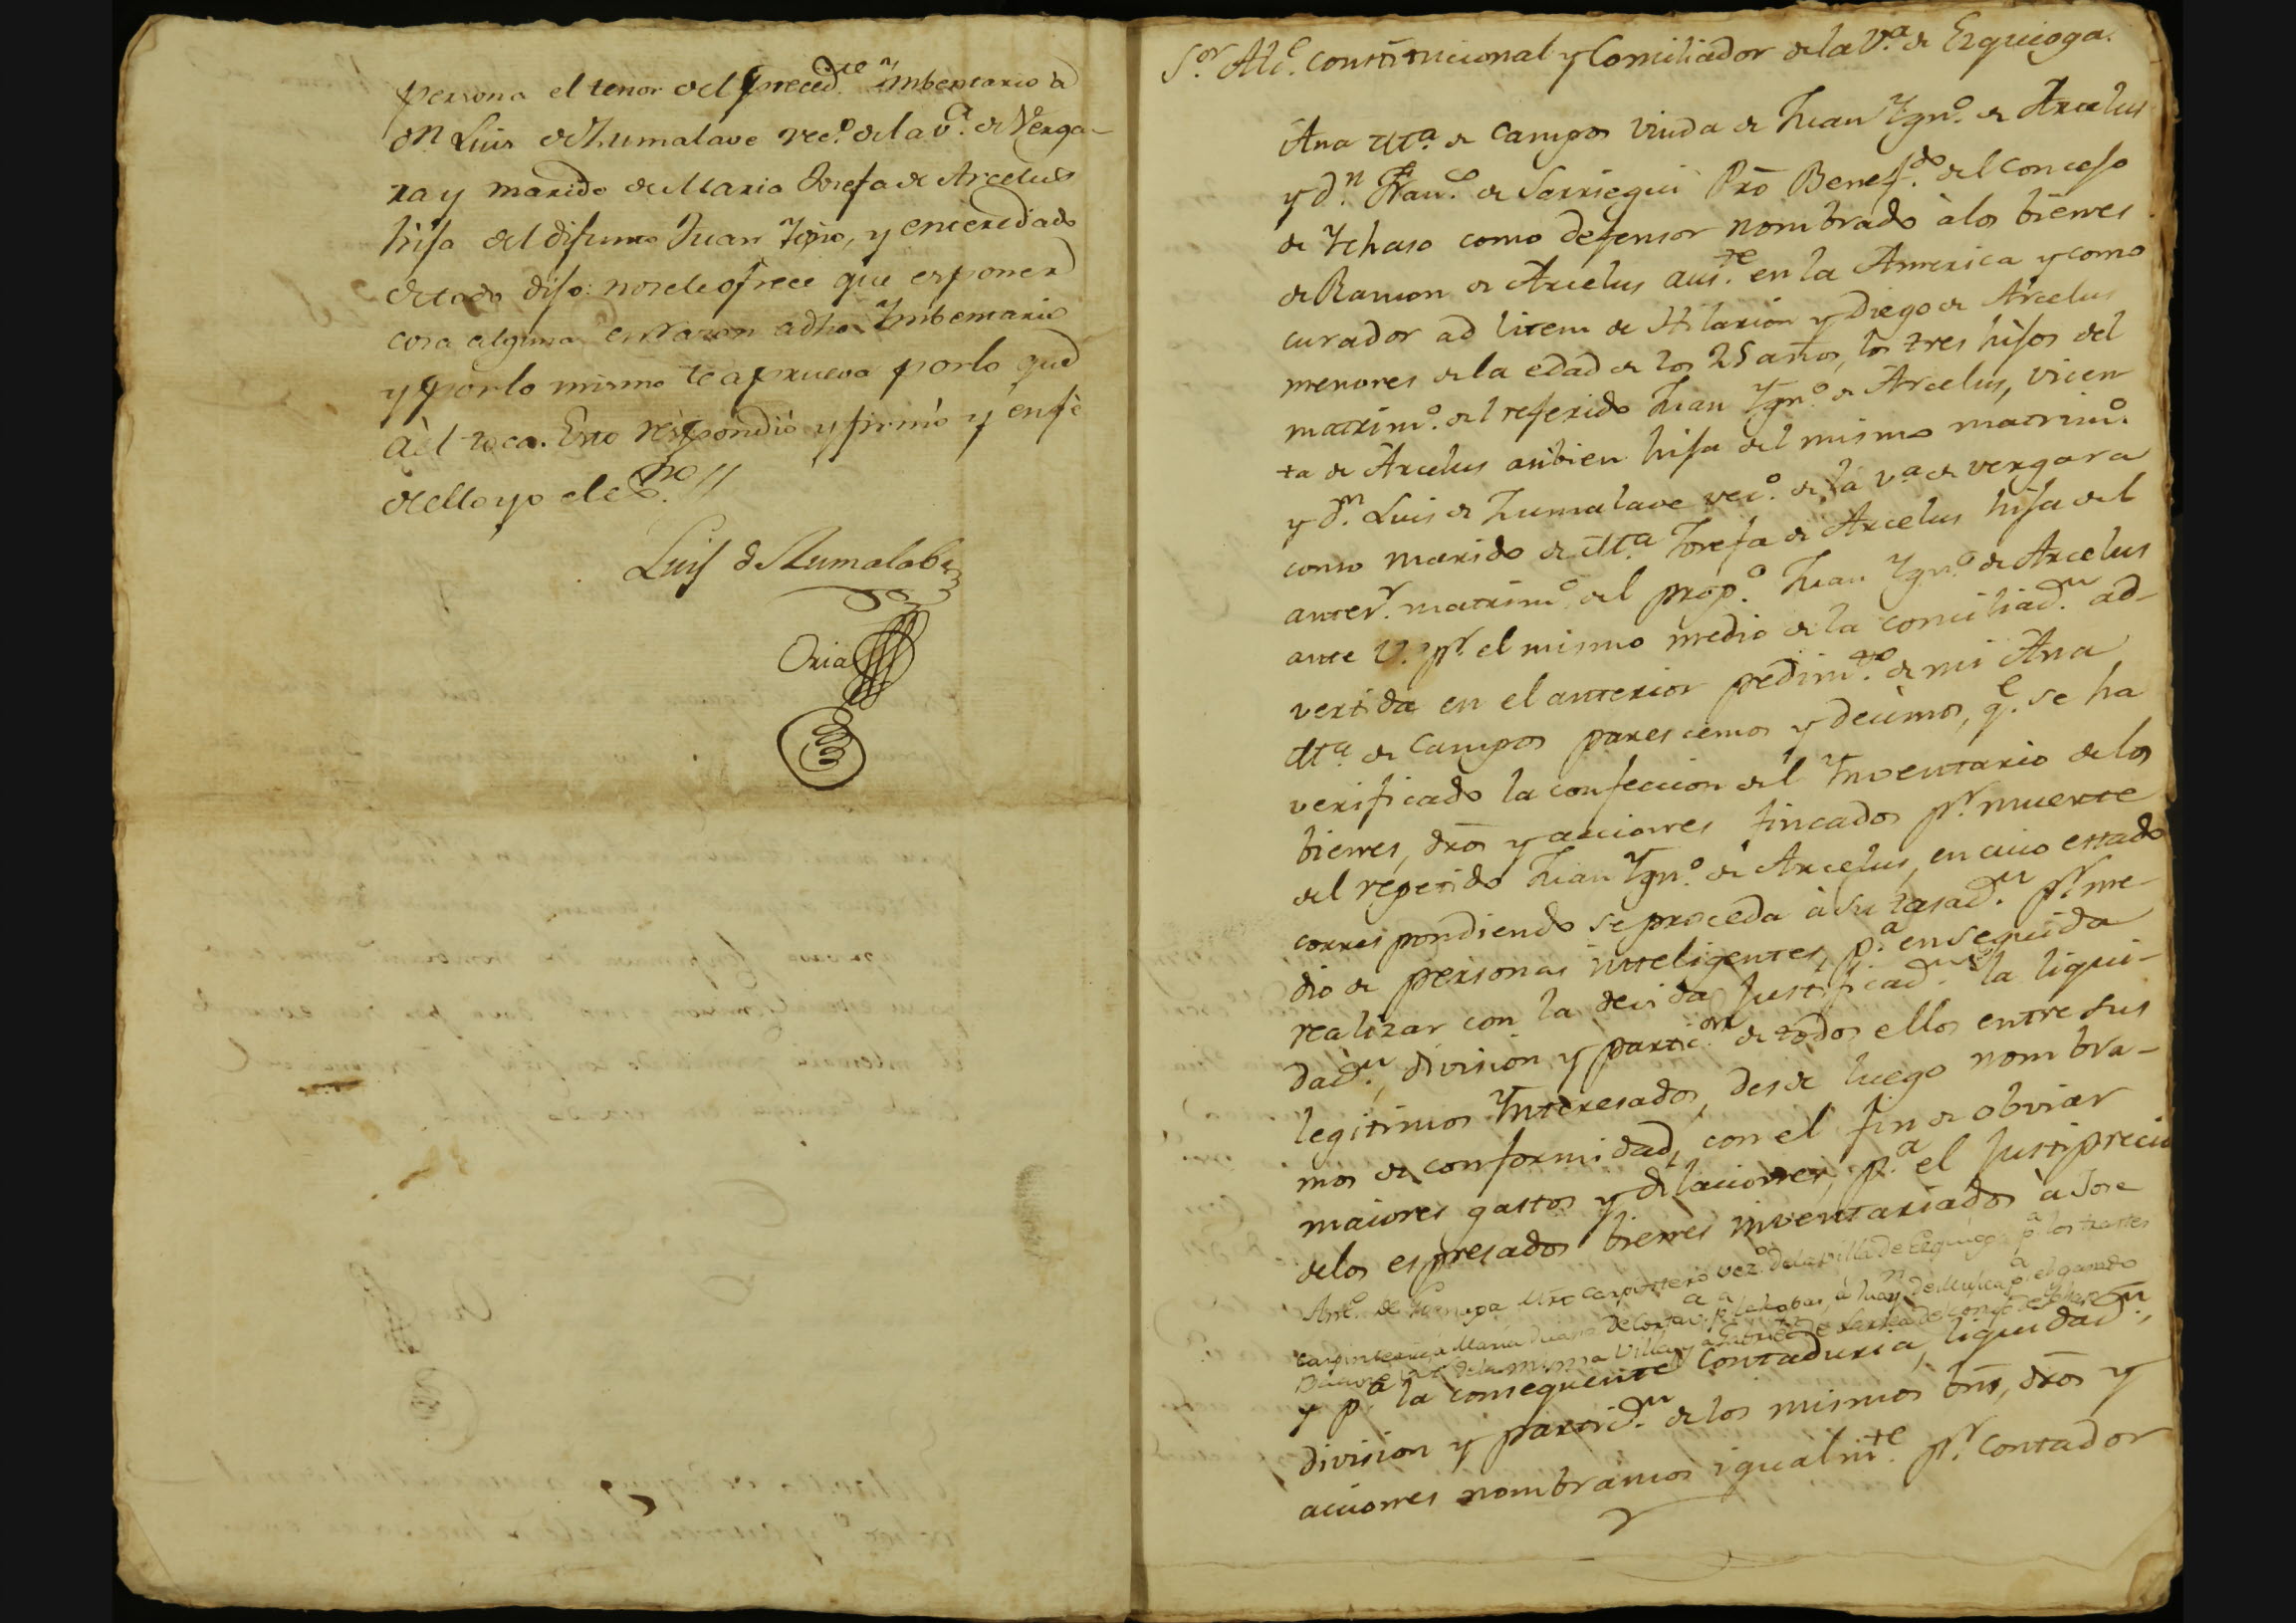 persona el tenor del preced.te Imbentario á
dn Luis de Zumalave vec.o de la v.a de Verga-
ra y marido de Maria Josefa de Arcelus
hija del difunto Juan Igno, y enterado
de todo dijo: no se le ofrece que esponer
cosa alguna en razon adho Imbentario
y por lo mismo le aprueva por lo que
àel toca. Esto respondiò y firmò y en fè
de ello yo el es.no //
Luis d Zumalabe
Oria
S.or Alc.e constitucional y Conciliador de la V.a de Ezquioga.
Ana M.a de Campos viuda de Juan Ygn.o de Arcelus
y d.n Fran.co de Sarriegui Pro Benef.do del Concejo
de Ychaso como defensor nombrado à los bienes
de Ramon de Arcelus aus.te en la America y como
curador ad litem de Hilarion y Diego de Arcelus
menores de la edad de los 25 años, los tres hijos del
matrim.o del referido Juan Ygn.o de Arcelus, Vicen
ta de Arcelus asibien hija del mismo matrim.o
y d.n Luis de Zumalave vec.o de la v.a de vergara
como marido de M.a Josefa de Arcelus hija del
anter.r matrim.o del prop.o Juan Ygn.o de Arcelus
ante V. p.r el mismo medio de la conciliac.n ad-
vertida en el anterior pedim.to de mi Ana
M.a de Campos parescemos y decimos, q.e se ha
verificado la confeccion del Ynventario de los
bienes, dros y acciones fincados p.r muerte
del repetido Juan Ygn.o de Arcelus, en cuio estado
correspondiendo se proceda à su tasac.n p.r me-
dio de personas inteligentes, p.a enseguida
realizar con la devida justificac.n la liqui-
dac.n, division y partic.on de todos ellos entre sus
legitimos Ynteresados, desde luego nombra-
mos de conformidad, con el fin de obviar
maiores gastos y dilaciones, p.a el justiprecio
de los espresados bienes inventariados à Jose
Ant.o de Mro carpintero vez.o de la villa de Ezquioga p.a los trastes
carpinteria, à Maria p.a la ropa, à Juan de p.a el ganado
de la misma Villa y a de del conc.o de Ychaso
y p.a la consequente contaduria, liquidac.n,
division y partic.n de los mismos bns, dros y
acciones nombramos igualm.te p.r contador